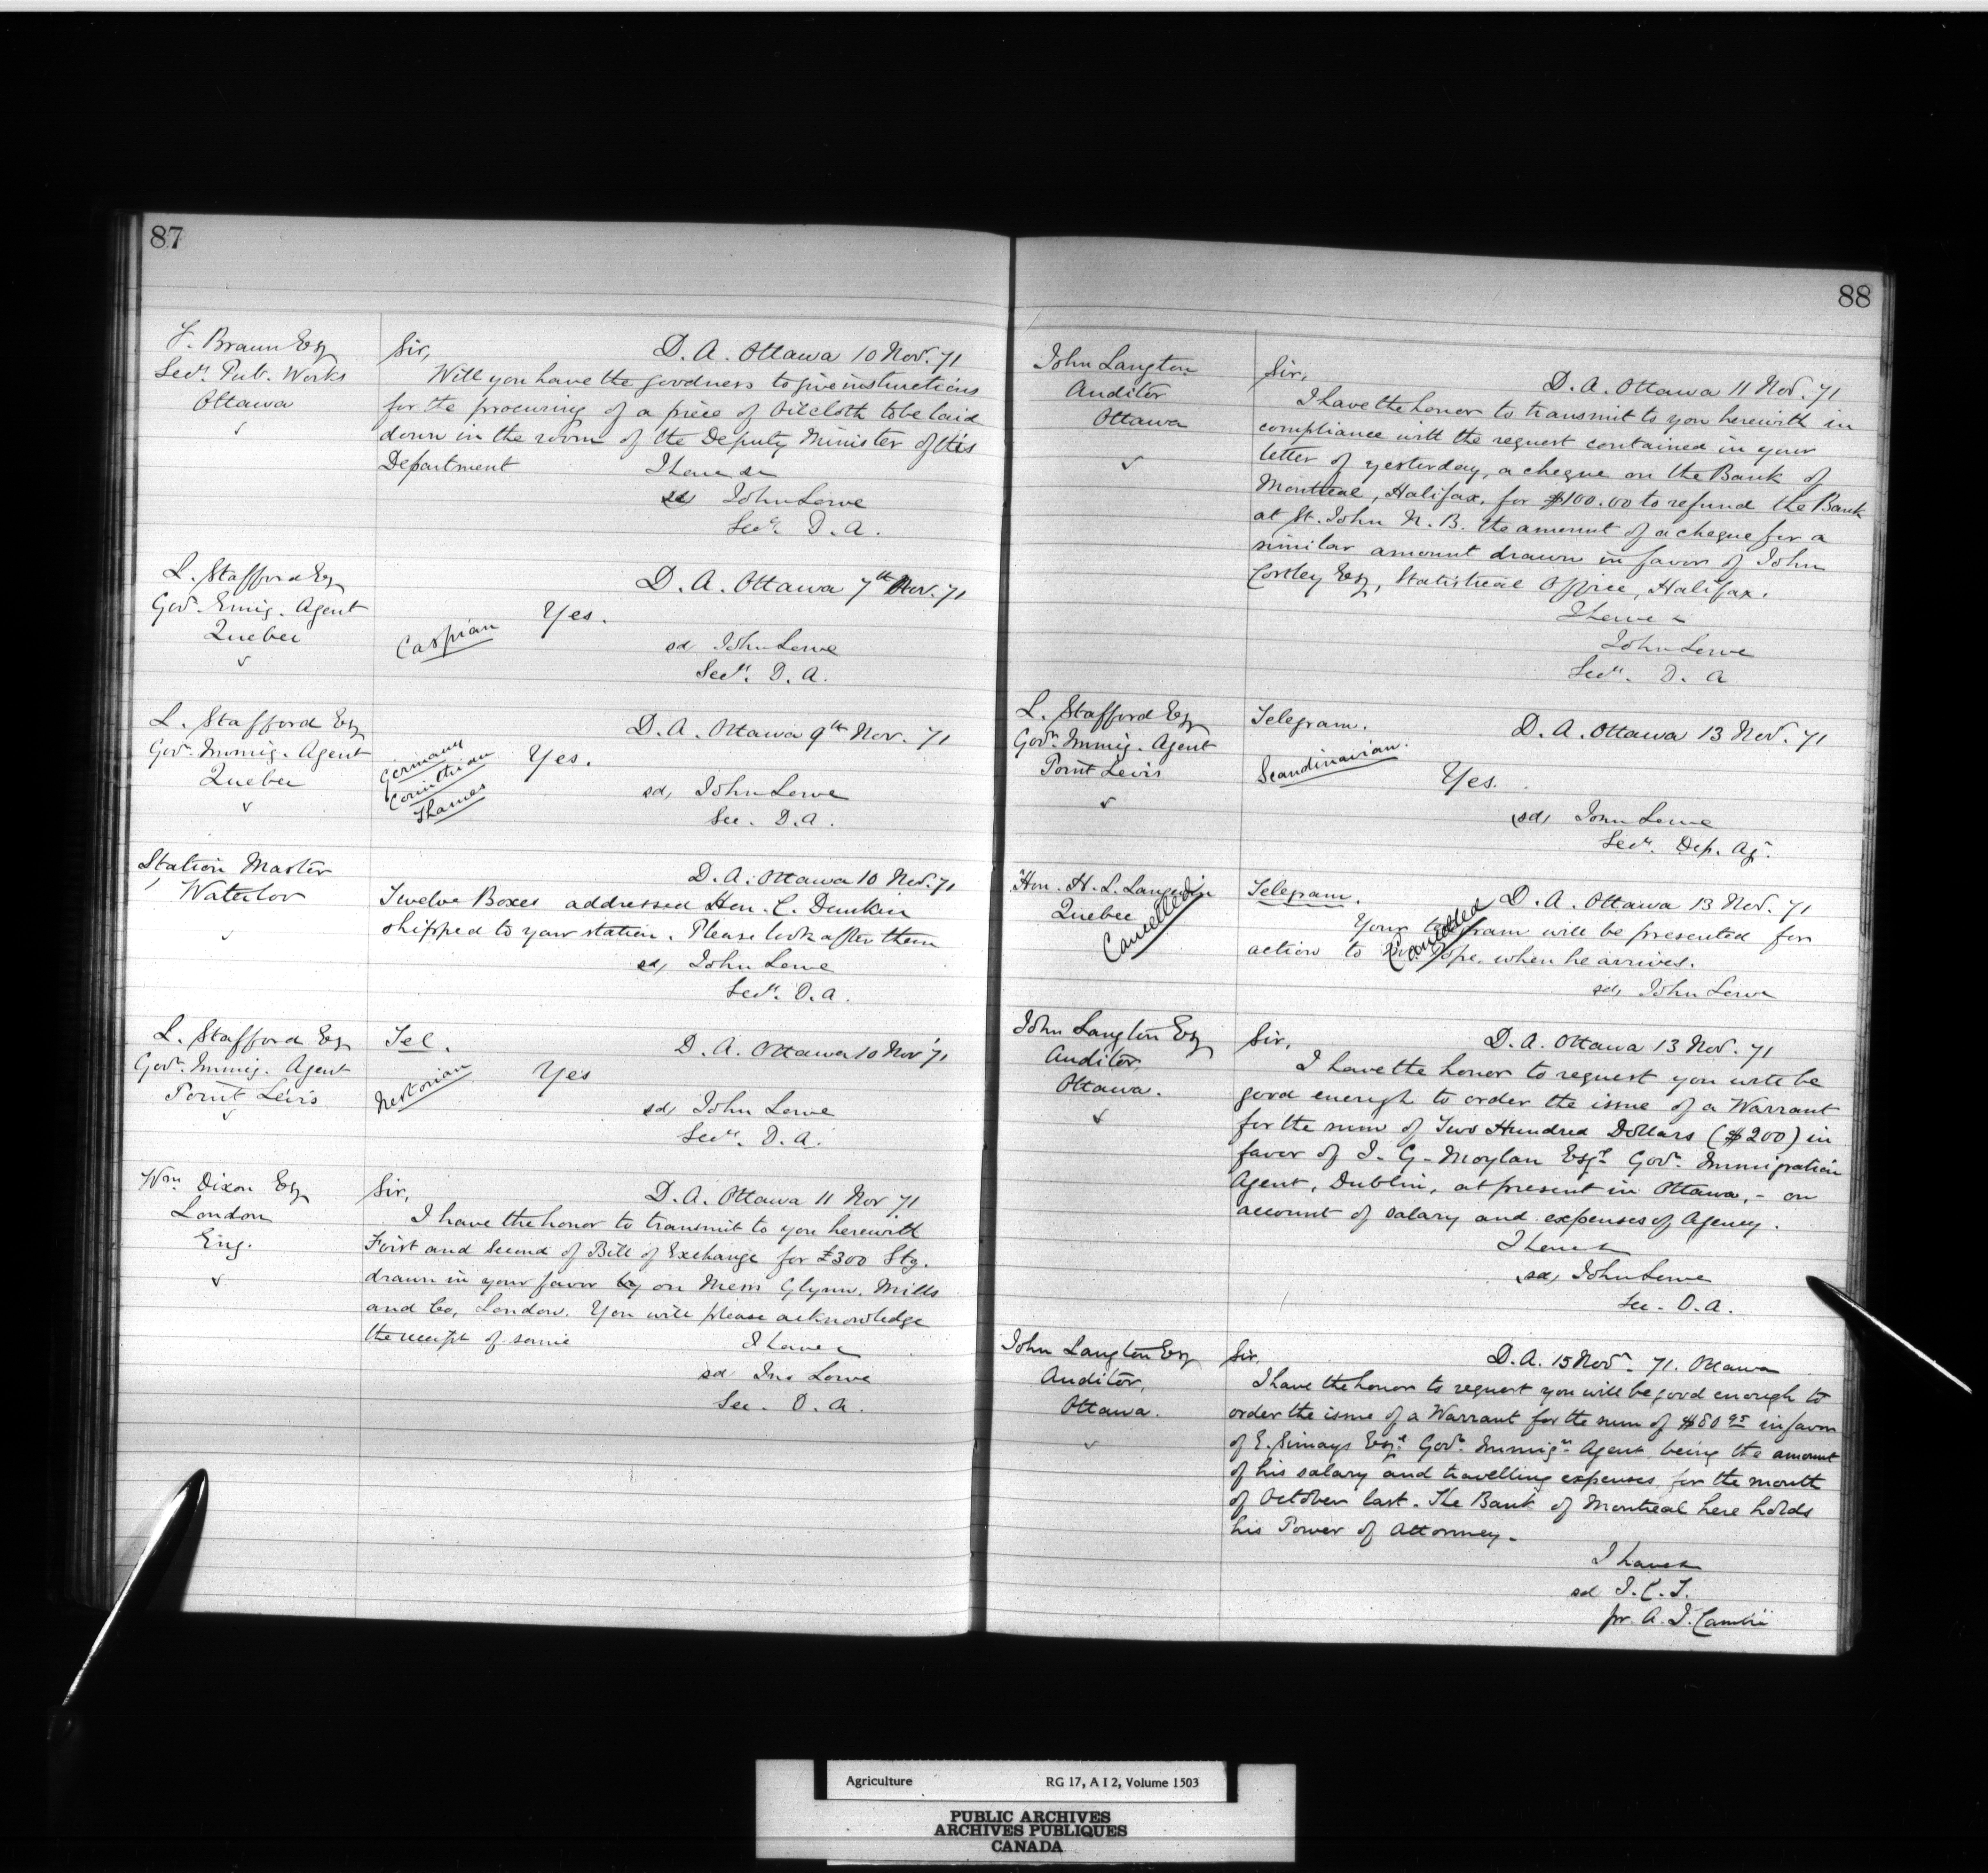 87
F. Braun Esq
Secy. Pub. Works
Ottawa
Sir,
D. A. Ottawa 10 Nov. 71
Will you have the goodness to give instructions
for the procuring of a piece of Oilcloth to be laid
down in the room of the Deputy Minister of this
Department
I have &c
sd John Lowe
Secy. D. A.
L. Stafford Esq
Govt. Emig. Agent
Quebec
D. A. Ottawa 7th Nov. 71
Caspian
Yes.
sd John Lowe
Secy. D. A.
L. Stafford Esq
Govt. Immig. Agent
Quebec
D. A. Ottawa 9th Nov. 71
Germany
Corinthian
Thames
Yes.
sd, John Lowe
Sec. D. A.
Station Master
Waterloo
D. A. Ottawa 10 Nov. 71
Twelve Boxes addressed Hon. C. Dunkin
shipped to your station. Please look after them
sd, John Lowe
Secy. D. A.
L. Stafford Esq
Govt. Immig. Agent
Point Levis
Tel.
D. A. Ottawa 10 Nov 71
Nestorian
Yes
sd, John Lowe
Secy. D. A.
Wm Dixon Esq
London
Eng.
Sir,
D. A. Ottawa 11 Nov 71
I have the honor to transmit to you herewith
First and Second of Bill of Exchange for £300 Stg.
drawn in your favor by on Messrs Glynn, Mills
and Co, London. You will please acknowledge
the receipt of same
I have &
sd Jno Lowe
Sec. D. A.
88
John Langton
Auditor
Ottawa
Sir,
D. A. Ottawa 11 Nov. 71
I have the honor to transmit to you herewith in
compliance with the request contained in your
letter of yesterday, a cheque on the Bank of
Montreal, Halifax, for $100.00 to refund the Bank
at St. John N. B. the amount of a cheque for a
similar amount drawn in favor of John
Costley Esq, Statistical Office, Halifax.
I have &
John Lowe
Secy. D. A
L. Stafford Esq
Govt. Immig. Agent
Point Levis
Telegram.
D. A. Ottawa 13 Nov. 71
Scandinavian.
Yes.
(sd, John Lowe
Secy. Dep. Ag.
Hon. H. L. Langevin
Quebec
Cancelled
Telegram.
D. A. Ottawa 13 Nov. 71
Your telegram will be presented for
Cancelled
action to Dr. Pope, when he arrives.
sd, John Lowe
John Langton Esq
Auditor,
Ottawa.
Sir,
D. A. Ottawa 13 Nov. 71
I have the honor to request you will be
good enough to order the issue of a Warrant
for the sum of Two Hundred Dollars ($200) in
favor of J. G. Moylan Esqre Govt. Immigration
Agent, Dublin, at present in Ottawa, - on
account of salary and expenses of Agency.
I have &
sd, John Lowe
Sec. D. A.
John Langton Esq
Auditor,
Ottawa.
Sir,
D. A. 15 Nov. 71. Ottawa
I have the honor to request you will be good enough to
order the issue of a Warrant for the sum of $80 95 in favor
of E. Simays Esqr. Govt. Immign. Agent, being the amount
of his salary and travelling expenses, for the month
of October last. The Bank of Montreal here holds
his Power of Attorney.
I have &
sd J. C. T.
pr. A. J. Cambie
Agriculture
RG 17, A I 2, Volume 1503
PUBLIC ARCHIVES
ARCHIVES PUBLIQUES
CANADA